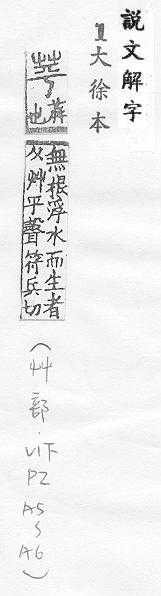 說文解字
1大徐本
苹蓱也
無根浮水而生者
从艸平聲符兵切
(艸部.VI下
P2
A5
~
A6)